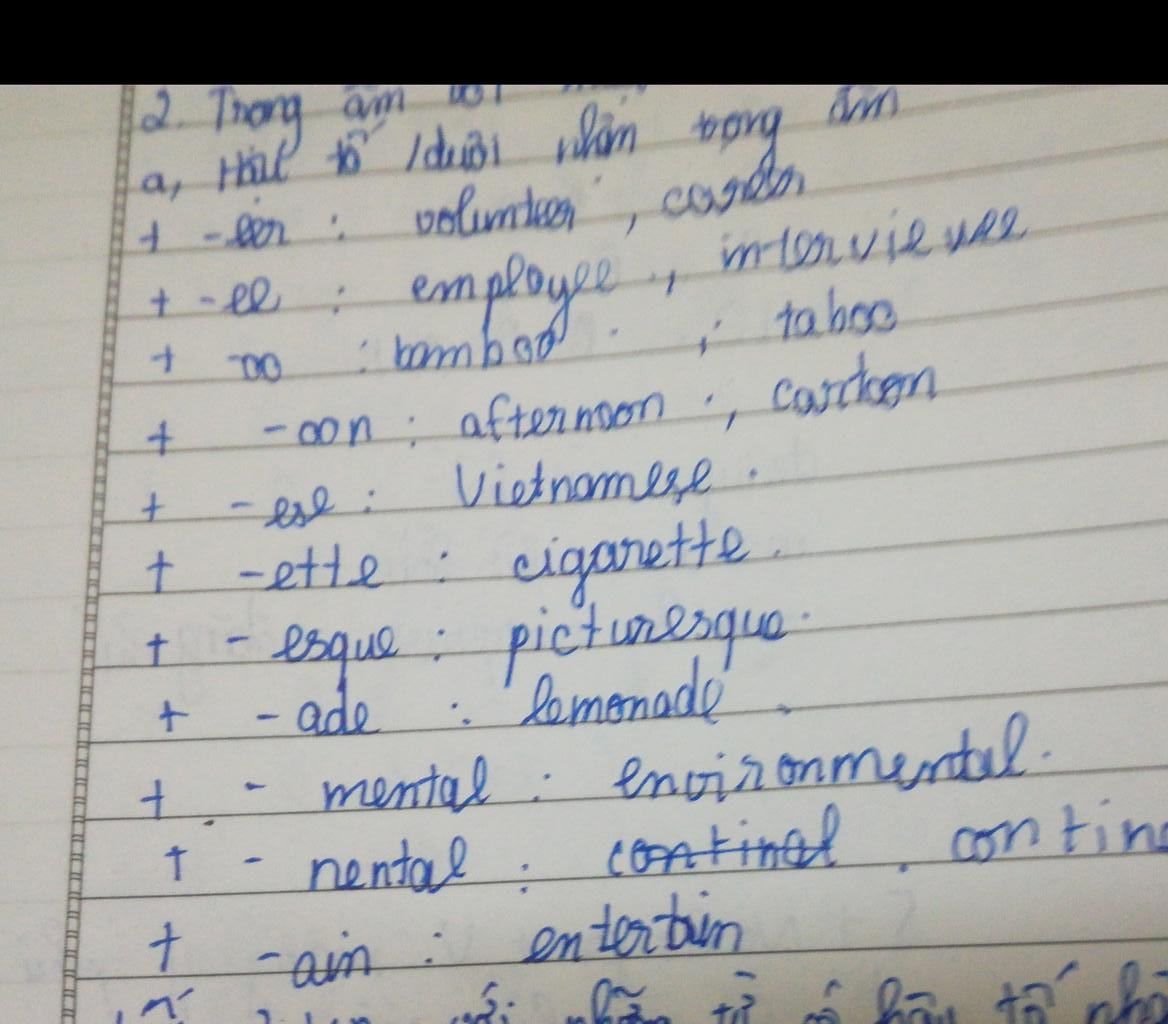 2. Trọng âm với
a, Hậu tố /đuôi nhấn trọng âm
+ -eer : volunteer , career
+ -ee : employee , interviewee
+ oo : bamboo , taboo
+ -oon : afternoon , cartoon
+ -ese : Vietnamese .
+ -ette : cigarette .
+ - esque : picturesque .
+ - ade : lemonade .
+ - mental : environmental .
+ - nental : continal . contin
+ - ain : entertain